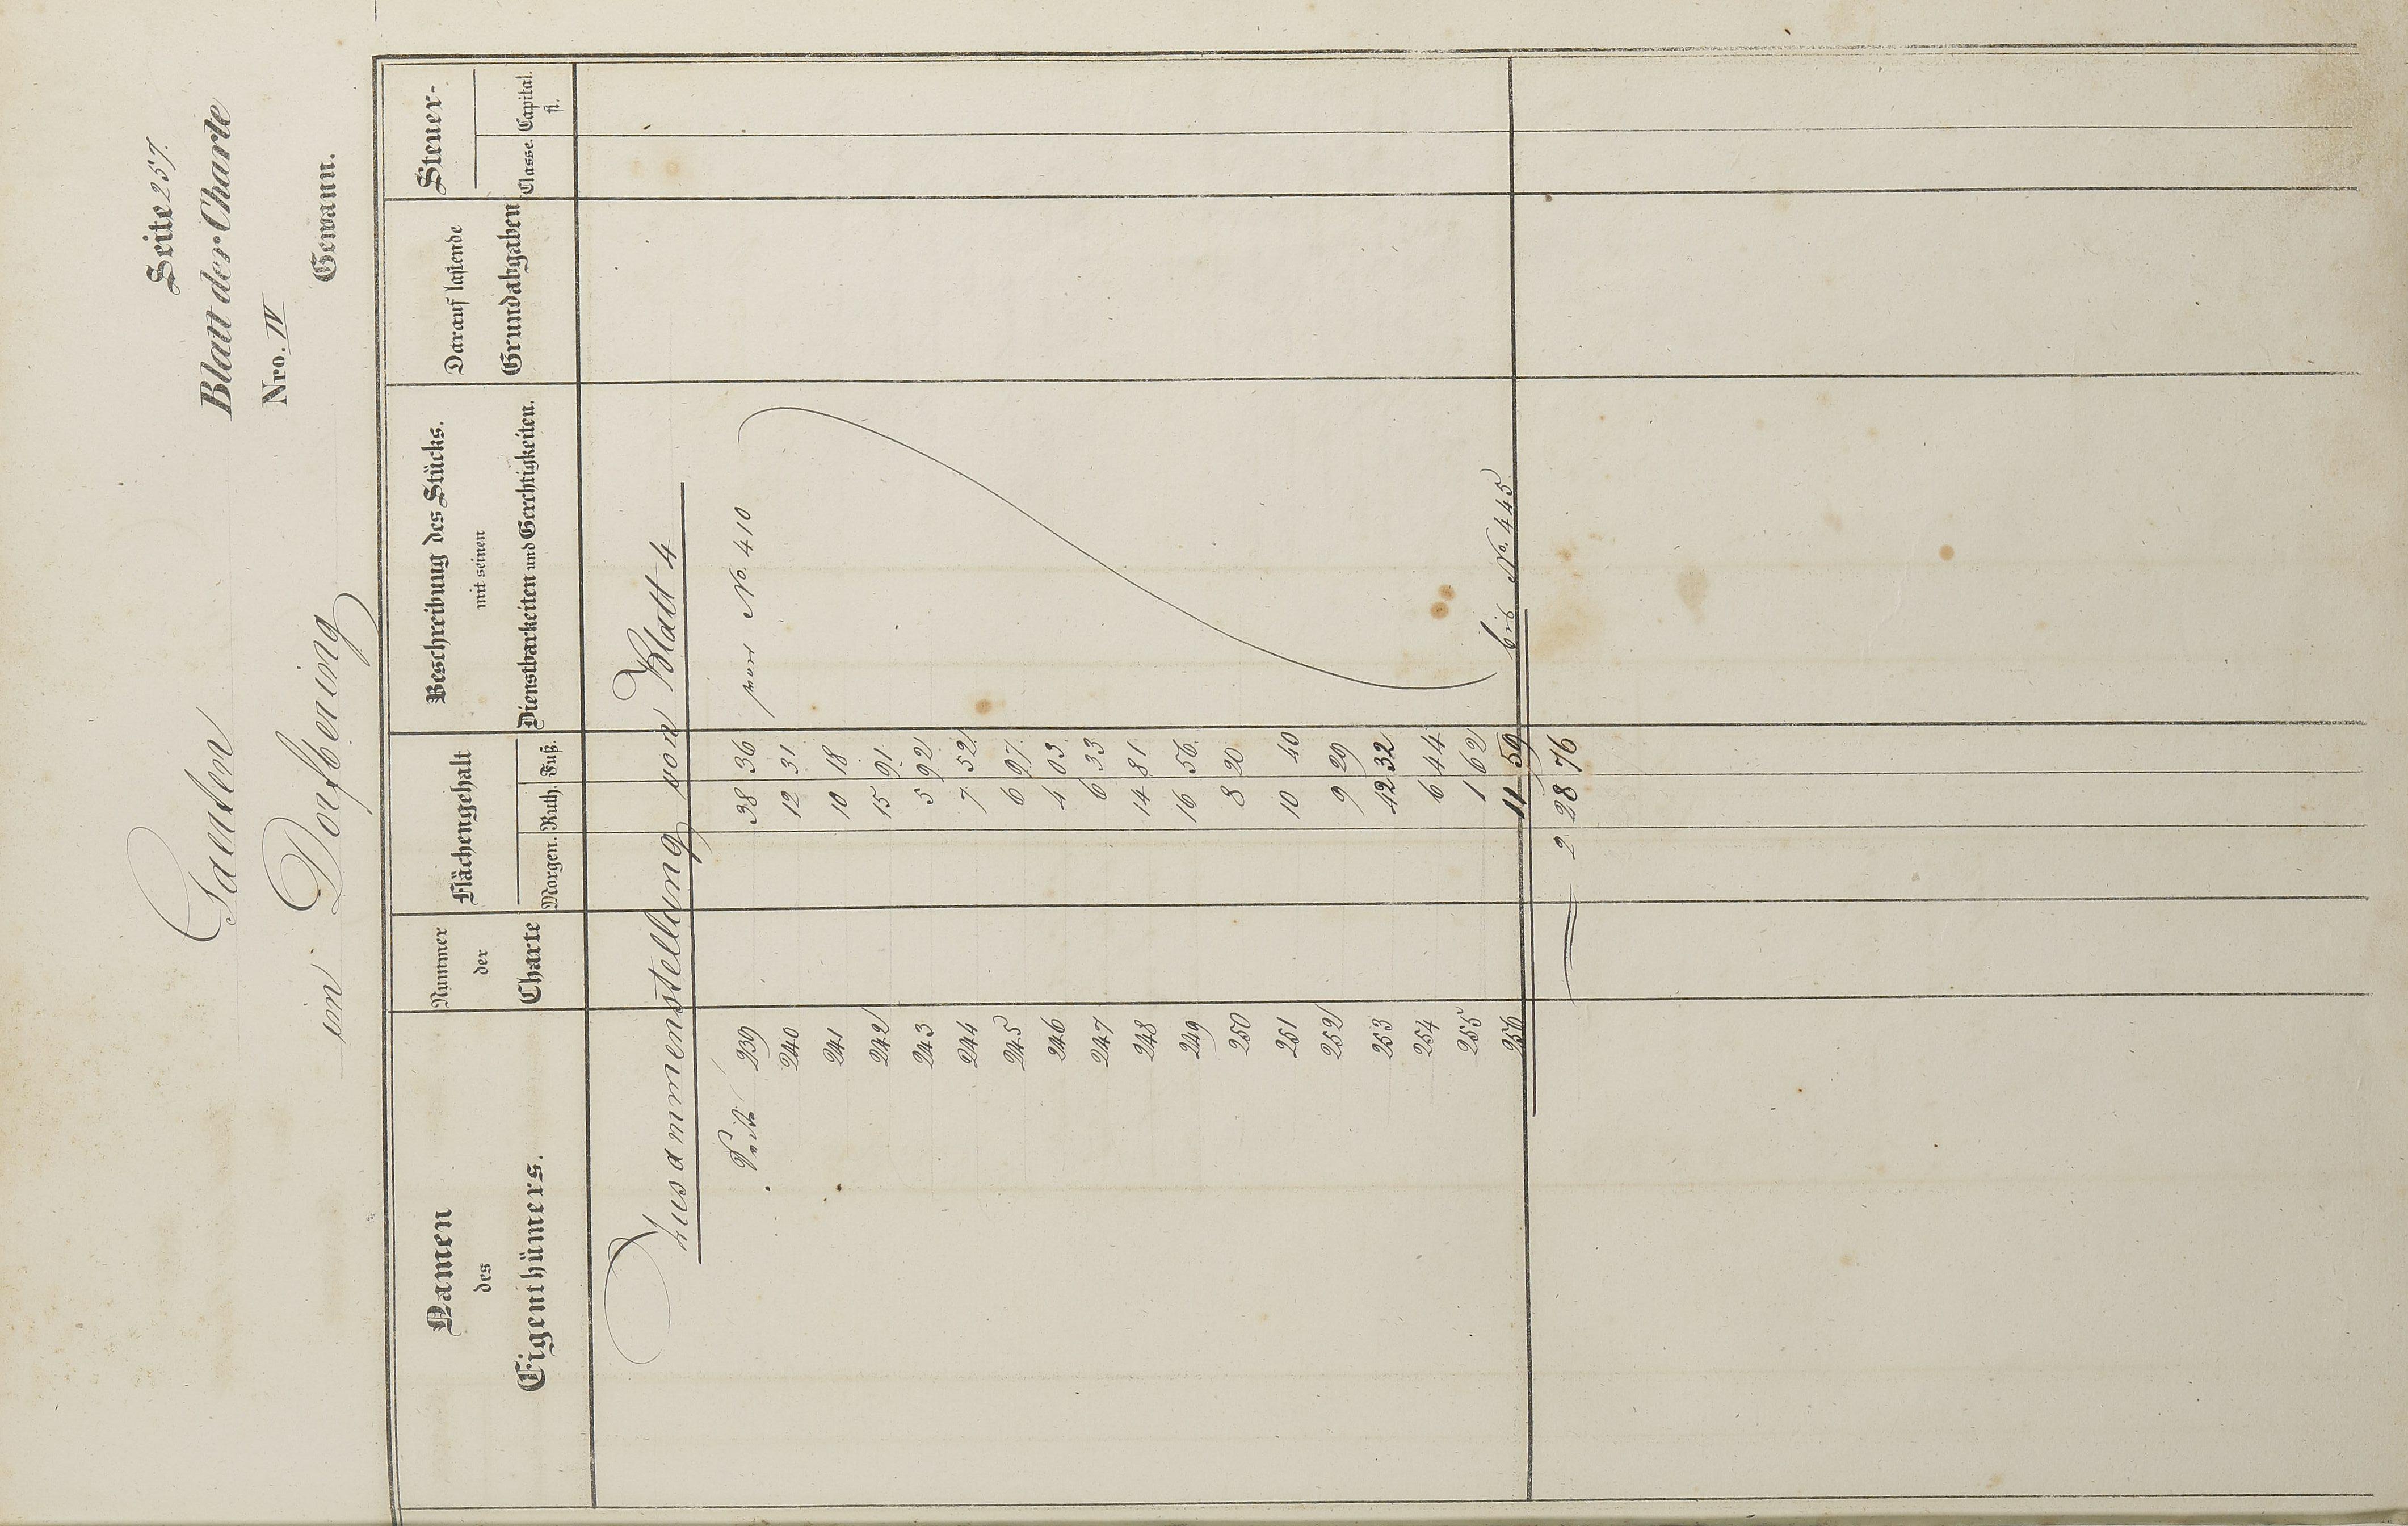 Seite 257.
Blatt der Charte
Nro. IV
Gewann.
Gaerten
im Dorfbering
Namen
des
Eigenthümers.
Nummer
der
Charte
Flächengehalt
Morgen. Ruth. Fuß.
Beschreibung des Stücks.
mit seinen
Dienstbarkeiten und Gerechtigkeiten.
Darauf lastende
Grundabgaben
Steuer-
Classe. Capital.
fl.
Zusammenstellung von Blatt 4
Seite 239 38 36 von No. 410
240 12 31
241 10 18
242 15 91
243 5 92
244 7 52
245 6 97
246 4 03
247 6 33
248 14 81
249 16 56
250 8 20
251 10 40
252 9 29
253 42 32
254 6 44
255 1 62
256 11 59 bis No. 445
2 28 76